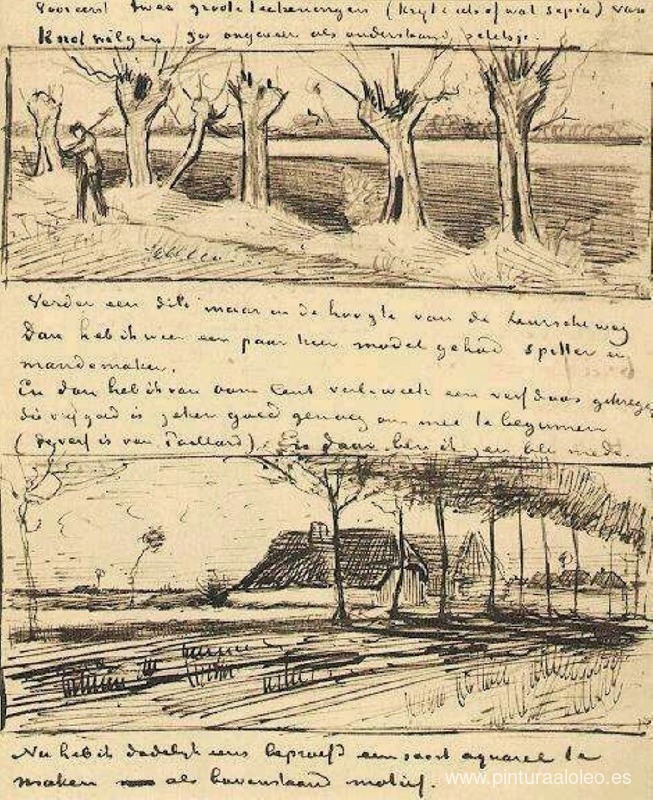 Vooreerst twee groote teekeningen (krijt en of wat sepia) van
Knotwilgen zoo ongeveer als onderstaand schetsje.
Verder een dito maar in de hoogte van de Leurscheweg
Dan heb ik weer een paar keer model gehad spitter en
mandemaker.
En dan heb ik van oom Cent verl. week een verfdoos gekregen
die vrij goed is zeker goed genoeg om mee te beginnen
(de verf is van Paillard). En daar ben ik zeer blij mede.
Nu heb ik dadelijk eens beproefd een soort aquarel te
maken als bovenstaand motief.
www.pinturaaloleo.es